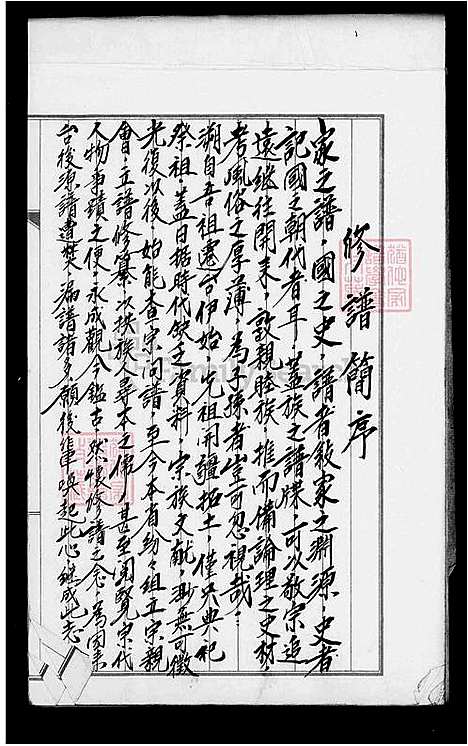 修譜簡序
家之譜，國之史，譜者敍家之淵源，史者
記國之朝代者耳，蓋族之譜牒，可以敬宗追
遠繼往開來，敦親睦族，推而備論理之史材，
考風俗之厚薄，為子孫者豈可忽視哉．
溯自吾祖遷台伊始，先祖開疆拓土，僅具典祀
祭祖，蓋日据時代缺乏資料，宗族文献，渺無可徵
光復以後，始能查宗問譜，至今本省紛々組立宗親
會，立譜修纂，以挾族人尋本之佛，甚至閱覽宗代
人物事蹟之便，永成觀今鑑古，然懷修譜之念，為因來
台後源譜遭焚，漏譜諸多，願後輩喚起此心，継成此志